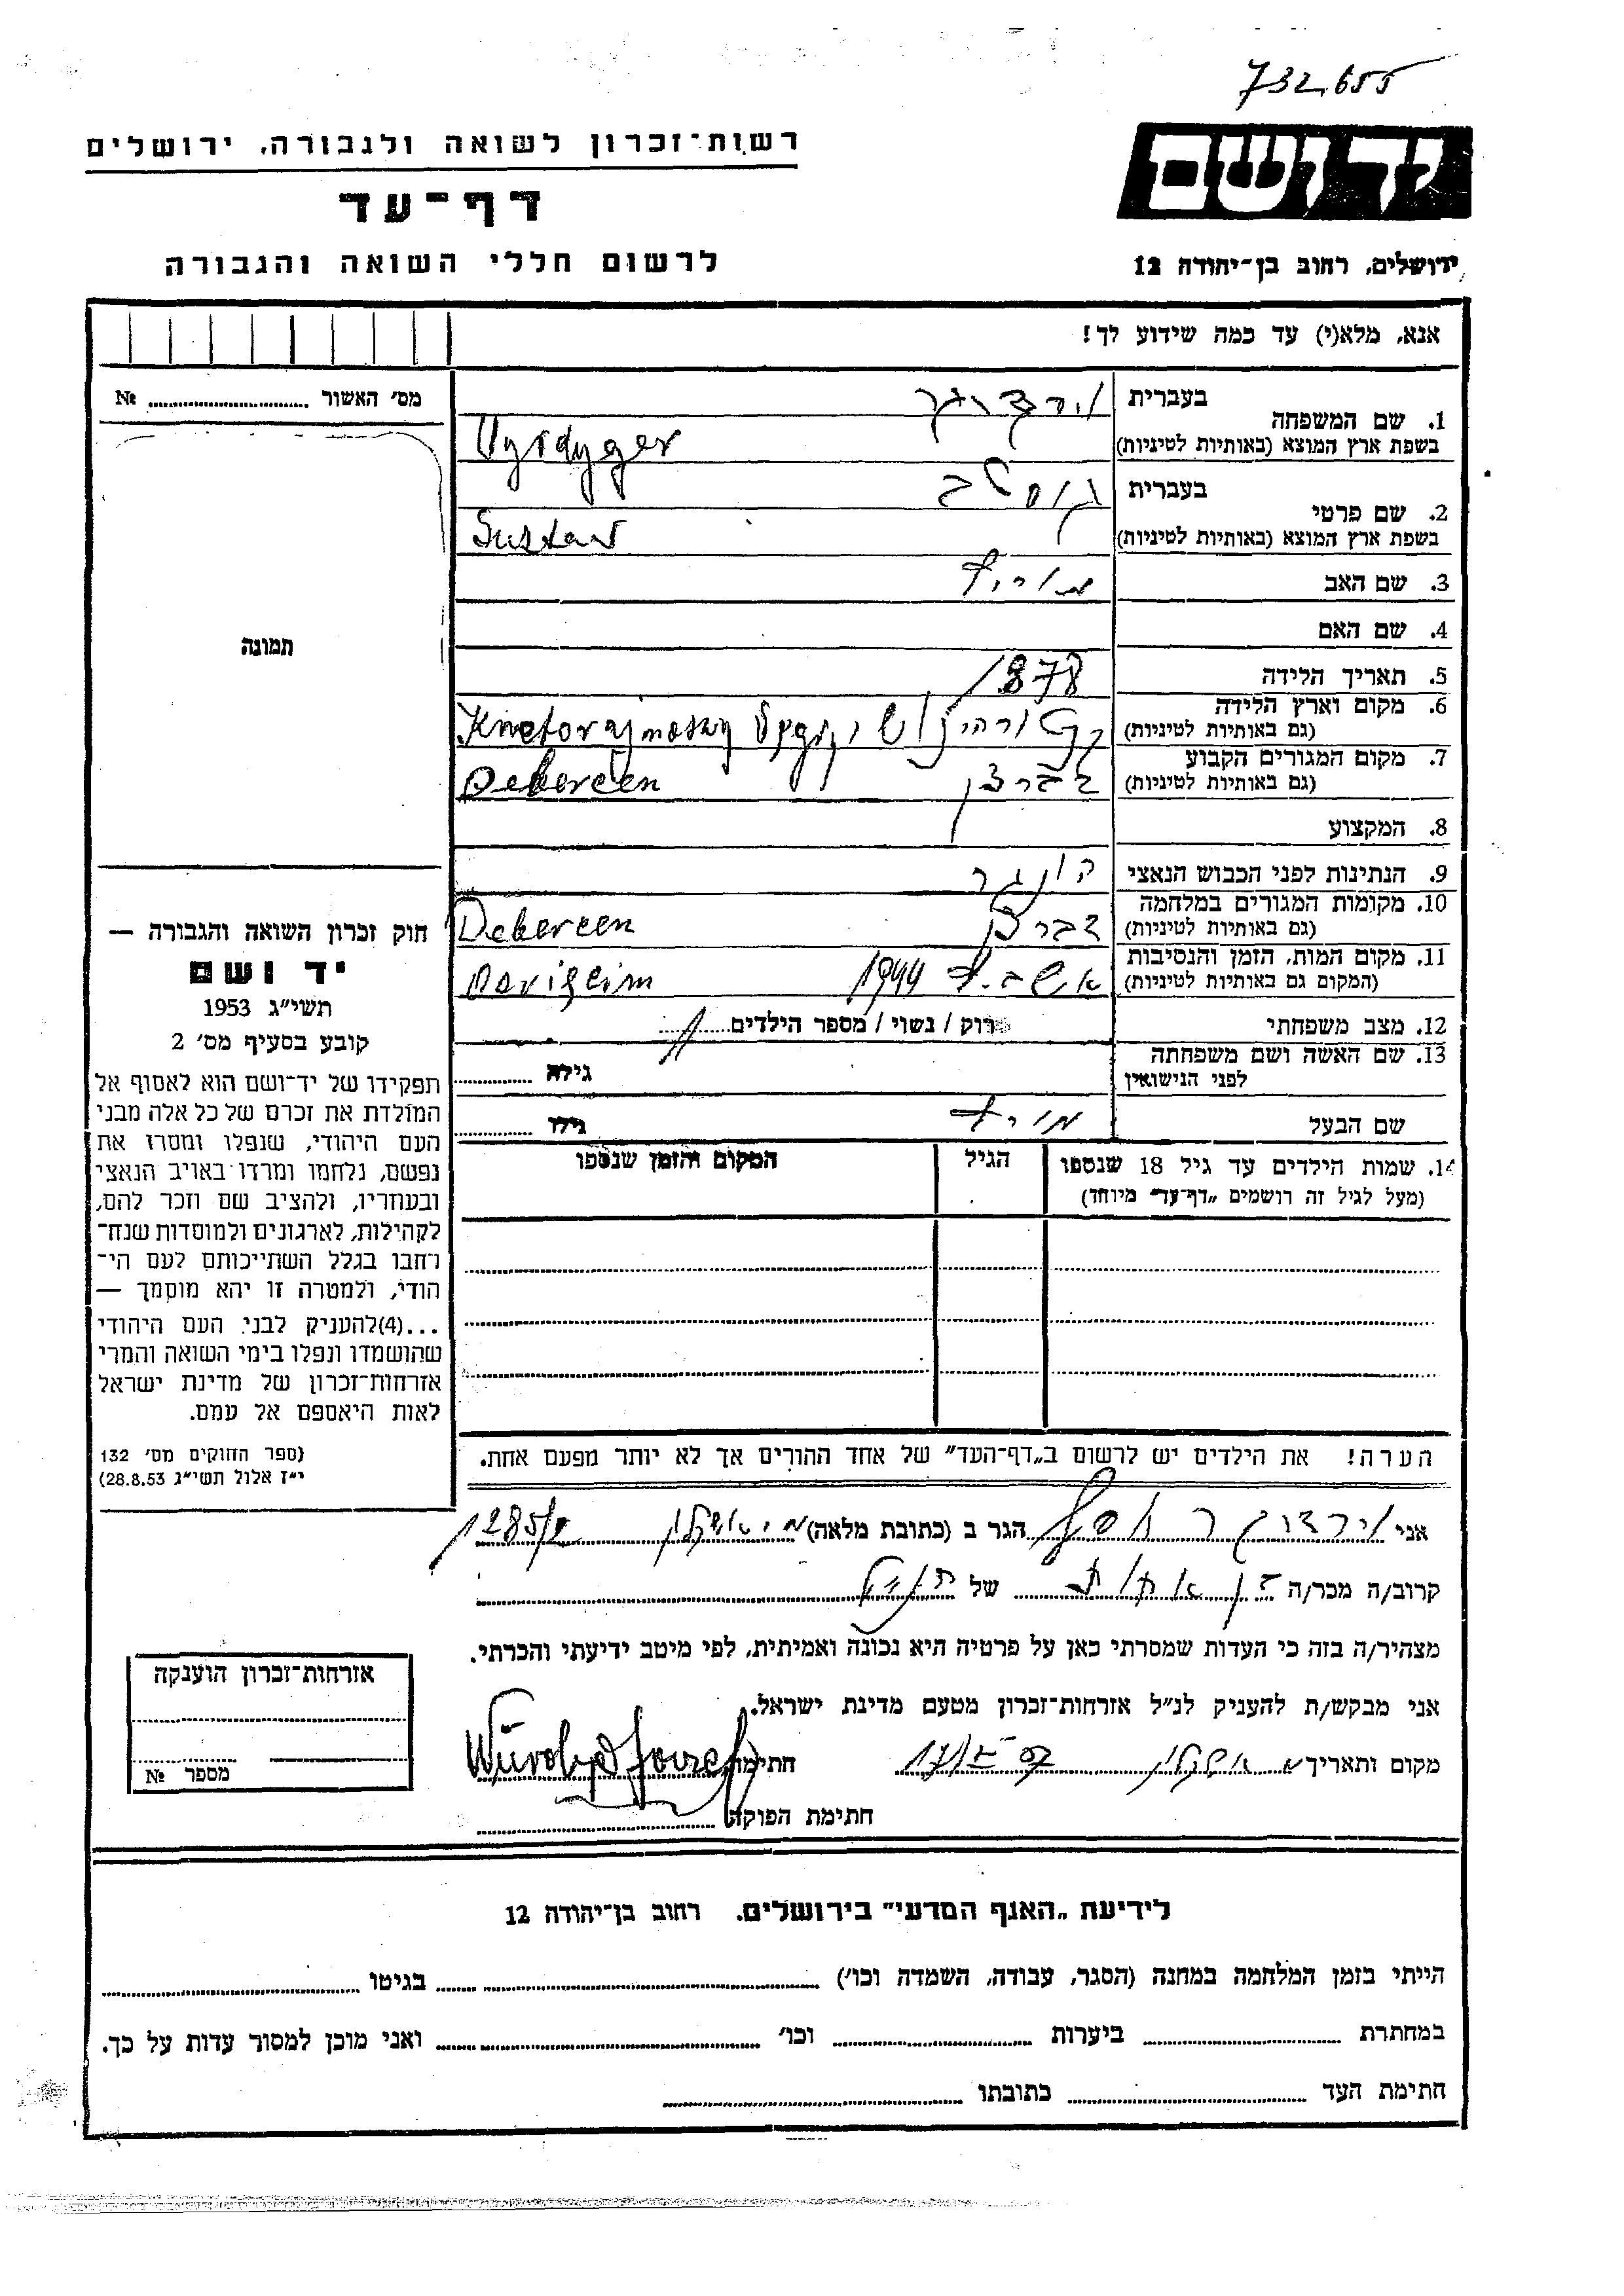 732,655
רשות־זכרון לשואה ולגבורה, ירושלים
יד ושם
דף־עד
לרשום חללי השואה והגבורה
ירושלים, רחוב בן־יהודה 12
אנא, מלא(י) עד כמה שידוע לך!
מס׳ האשור № 
1. שם המשפחה
בעברית
בשפת ארץ המוצא (באותיות לטיניות) Vyrdyger
2. שם פרטי
בעברית
בשפת ארץ המוצא (באותיות לטיניות) Gustav
3. שם האב
4. שם האם
תמונה
5. תאריך הלידה 1878
6. מקום וארץ הלידה
(גם באותיות לטיניות)
7. מקום המגורים הקבוע דברצן
(גם באותיות לטיניות) Debereen
8. המקצוע
9. הנתינות לפני הכבוש הנאצי הונגר
10. מקומות המגורים במלחמה דברצן
(גם באותיות לטיניות) Debereen
11. מקום המות, הזמן והנסיבות 1944
(המקום גם באותיות לטיניות)
12. מצב משפחתי רוק / נשוי / מספר הילדים
13. שם האשה ושם משפחתה
לפני הנישואין גילה
שם הבעל גילו
14. שמות הילדים עד גיל 18 שנספו הגיל המקום והזמן שנספו
(מעל לגיל זה רושמים „דף־עד״ מיוחד)
חוק זכרון השואה והגבורה —
יד ושם
תשי״ג 1953
קובע בסעיף מס׳ 2
תפקידו של יד־ושם הוא לאסוף אל
המולדת את זכרם של כל אלה מבני
העם היהודי, שנפלו ומסרו את
נפשם, נלחמו ומרדו באויב הנאצי
ובעוזריו, ולהציב שם וזכר להם,
לקהילות, לארגונים ולמוסדות שנח־
רחבו בגלל השתייכותם לעם הי־
הודי, ולמטרה זו יהא מוסמך —
...(4)להעניק לבני העם היהודי
שהושמדו ונפלו בימי השואה והמרי
אזרחות־זכרון של מדינת ישראל
לאות היאספם אל עמם.
(ספר החוקים מס׳ 132
י״ז אלול תשי״ג 28.8.53)
הערה! את הילדים יש לרשום ב„דף־העד״ של אחד ההורים אך לא יותר מפעם אחת.
אני הגר ב (כתובת מלאה)
קרוב/ה מכר/ה של
מצהיר/ה בזה כי העדות שמסרתי כאן על פרטיה היא נכונה ואמיתית, לפי מיטב ידיעתי והכרתי.
אני מבקש/ת להעניק לנ״ל אזרחות־זכרון מטעם מדינת ישראל.
מקום ותאריך חתימה
חתימת הפוקד
אזרחות־זכרון הוענקה
מספר №
לידיעת „האגף המדעי״ בירושלים, רחוב בן־יהודה 12
הייתי בזמן המלחמה במחנה (הסגר, עבודה, השמדה וכו׳) בגיטו
במחתרת ביערות וכו׳ ואני מוכן למסור עדות על כך.
חתימת העד כתובתו